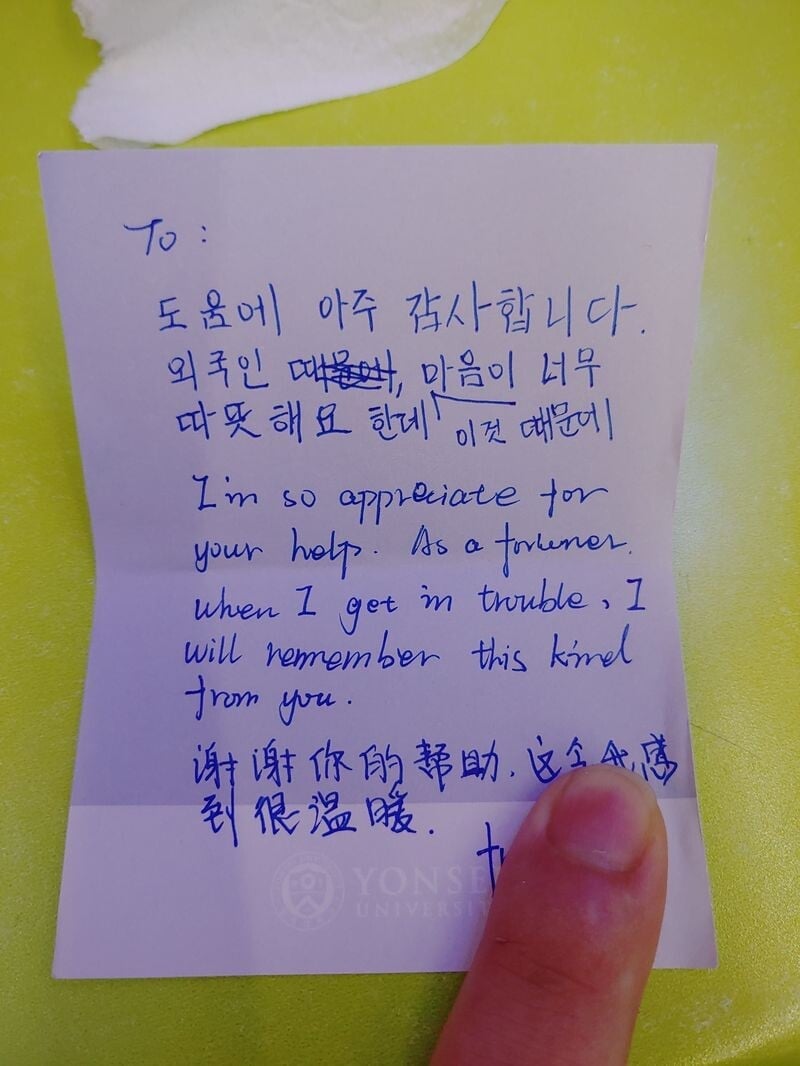 To :
도움에 아주 감사합니다.
외국인 마음이 너무
따뜻해요 한데 이것 때문에
I'm so appreciate for
your help. As a foruner.
when I get in trouble, I
will remember this kind
from you.
谢谢你的帮助.这令我感
到很温暖.
YONSE
UNIVERSI